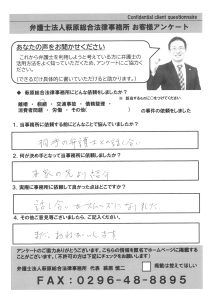 Confidential client questionnaire
弁護士法人萩原総合法律事務所 お客様アンケート
あなたの声をお聞かせください
これから弁護士を利用しようと考えている方に弁護士の
活用方法をよく知っていただくため、アンケートにご協力
ください。
(できるだけ具体的に書いていただけると助かります。)
◆ 萩原総合法律事務所にどんな依頼をしましたか?
離婚 ・ 相続 ・ 交通事故 ・ 債務整理 ・
消費者問題 ・ 労働 ・ その他( )の事件を依頼をしました
1. 当事務所に依頼する前にどんなことで悩んでいましたか?
2. 何が決め手となって当事務所に依頼しましたか?
3. 実際に事務所に依頼して良かった点はどこですか?
話し合いがスムーズに
4. その他ご意見等ございましたら、ご記入ください。
また、お願いします
アンケートのご協力ありがとうございます。こちらの情報を匿名でホームページに掲載する
ことがございます。(不許可の方は下記にチェックをお願いします)
弁護士法人萩原総合法律事務所 代表 萩原 慎二
掲載は控えてほしい
FAX:0296-48-8895